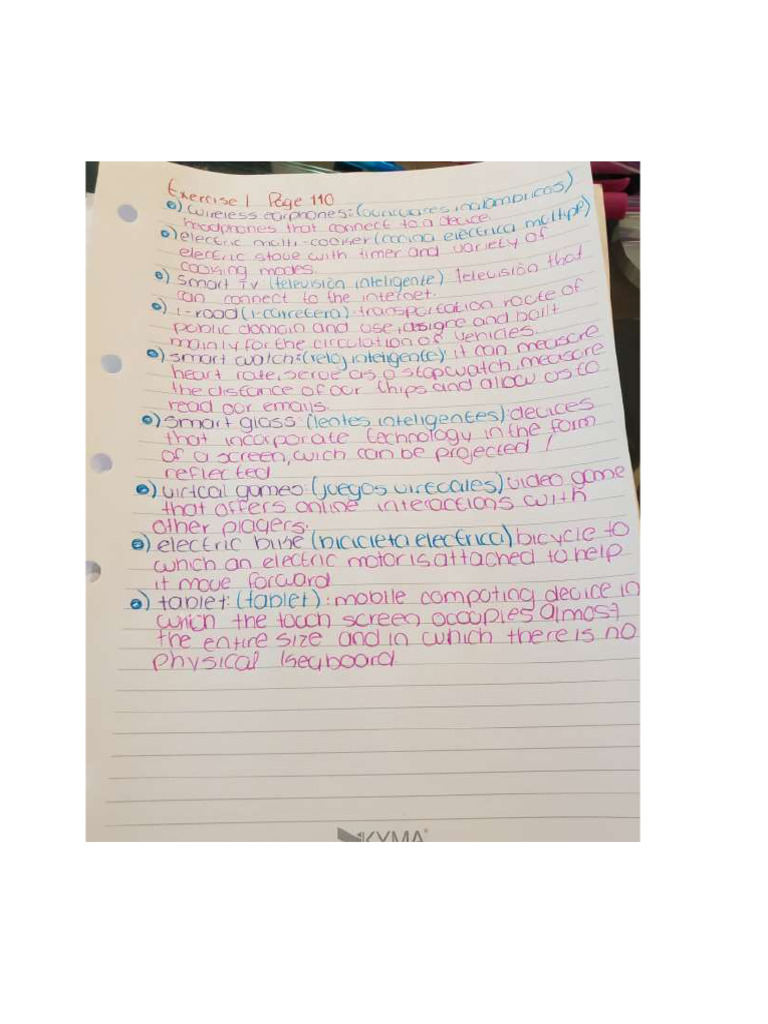 Exercise 1 Page 110
•) wireless earphones: (auriculares inalambricos)
headphones that connect to a device.
•) electric multi-cooker (cocina eléctrica multiple)
electric stove with timer and variety of
cooking modes.
•) smart tv (televisión inteligente) television that
can connect to the internet.
•) i-road (i-carretera): transportation route of
public domain and use, and built
mainly for the circulation of vehicles.
•) smart watch: (reloj inteligente): it can measure
heart rate, serve as a stopwatch, measure
the distance of our and allow us to
read our emails.
•) smart glass: (lentes inteligentes): devices
that incorporate technology in the form
of a screen, wich can be projected /
reflected
•) virtual games: (juegos virtuales) video game
that offers online interactions with
other players.
•) electric bike (bicicleta electrica) bicycle to
which an electric motor is attached to help
it move forward
•) tablet: (tablet): mobile computing device in
which the touch screen occupies almost
the entire size and in which there is no
physical keyboard
KYMA®